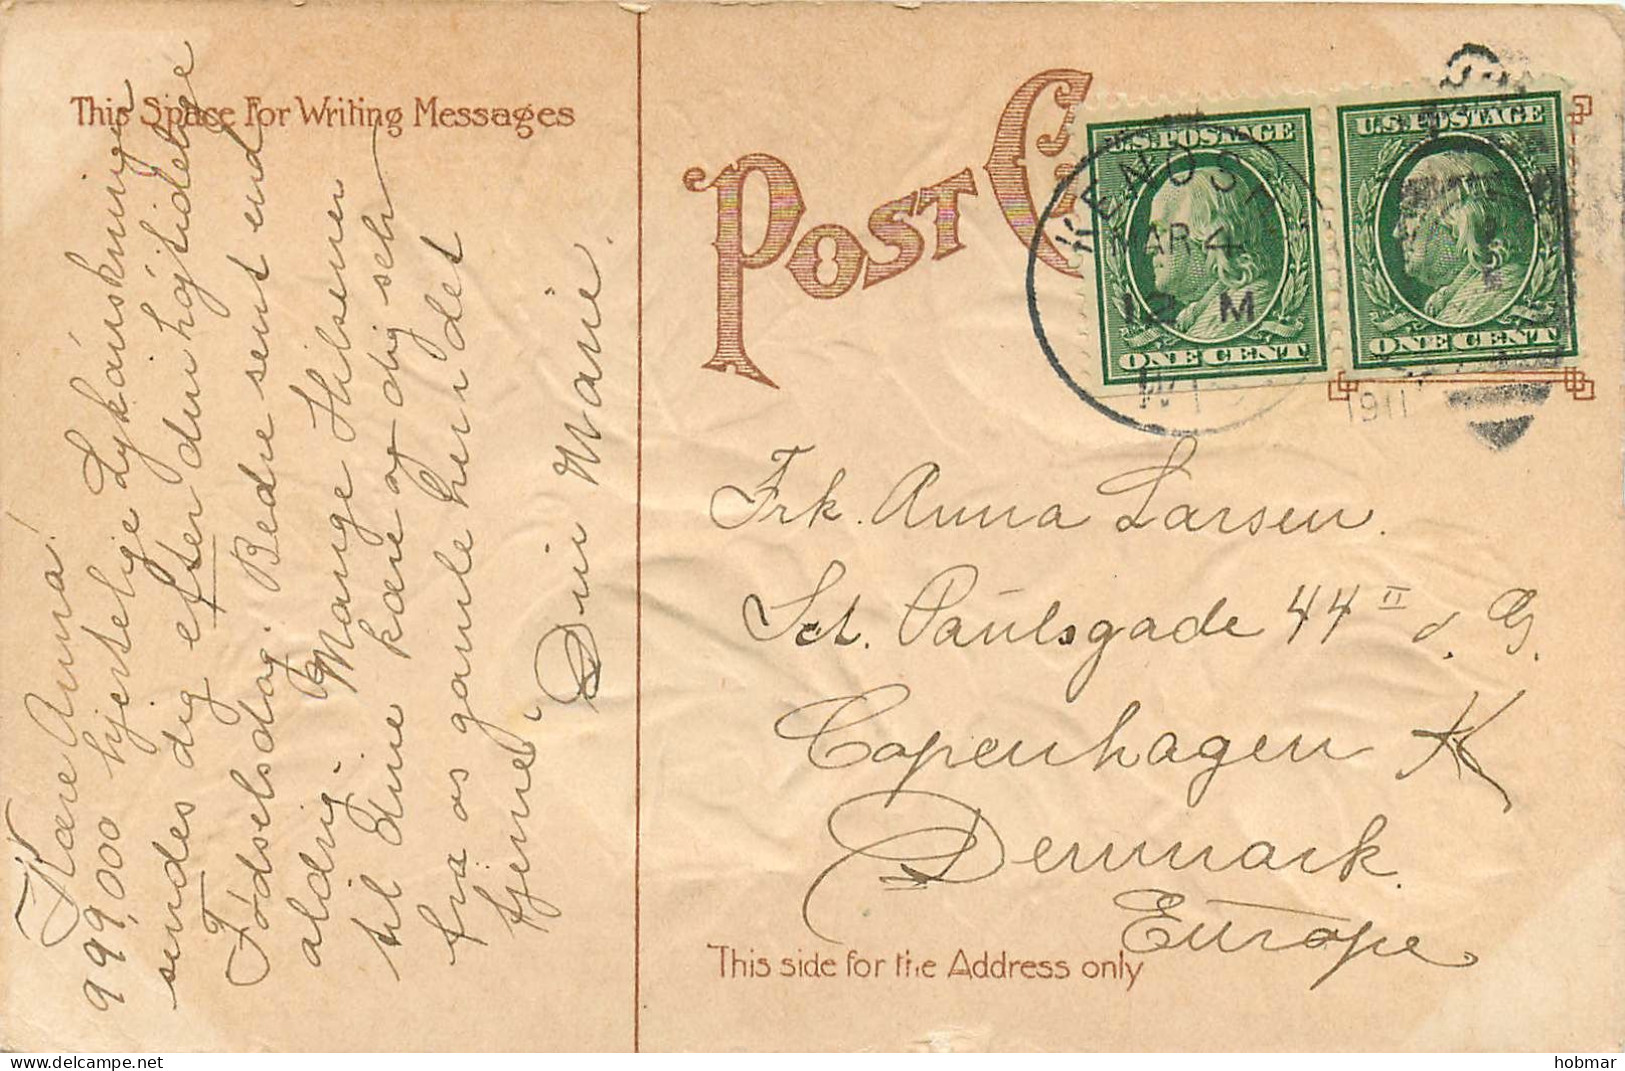 This Space For Writing Messages
POST C
U.S. POSTAGE
ONE CENT
U.S. POSTAGE
ONE CENT
KENOSH
MAR 4
12 M
WIS
1911
Kære Anna!
999,000 hjertelige Lykønskninger
sendes dig efter din højtidelige
Fødselsdag. Bedre sent end
aldrig. Mange Hilsener
til Eme kære og dig selv
fra os gamle her i det
fjerne.
Din Marie.
Frk. Anna Larsen.
Sct. Paulsgade 44 II
Copenhagen K
Denmark.
Europe.
This side for the Address only
hobmar